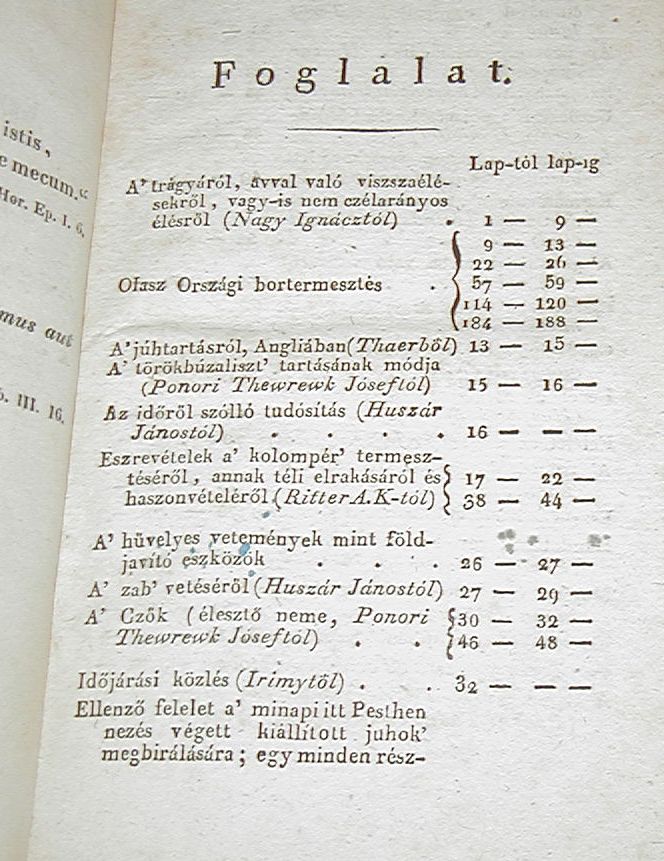 istis,
e mecum.“
Hor. Ep. I. 6.
mus aut
III. 16.
Foglalat.
Lap-tól lap-ig
A’ trágyáról, avval való viszszaélé-
sekről, vagy-is nem czélarányos
élésről (Nagy Ignácztól) . 1 — 9 —
9 — 13 —
22 — 26 —
Olasz Országi bortermesztés . 57 — 59 —
114 — 120 —
184 — 188 —
A’ júhtartásról, Angliában (Thaerből) 13 — 15 —
A’ törökbúzaliszt’ tartásának módja
(Ponori Thewrewk Jóseftól) 15 — 16 —
Az időről szólló tudósítás (Huszár
Jánostól) . . . . 16 — — —
Eszrevételek a’ kolompér’ termesz-
téséről, annak téli elrakásáról és 17 — 22 —
haszonvételéről (Ritter A.K-tól) 38 — 44 —
A’ hüvelyes vetemények mint föld-
javító eszközök . . . 26 — 27 —
A’ zab’ vetéséről (Huszár Jánostól) 27 — 29 —
A’ Czők (élesztő neme, Ponori 30 — 32 —
Thewrewk Jóseftól) . . 46 — 48 —
Időjárási közlés (Irimytől) . . 32 — — —
Ellenző felelet a’ minapi itt Pesthen
nezés végett kiállított juhok’
megbirálására; egy minden rész-